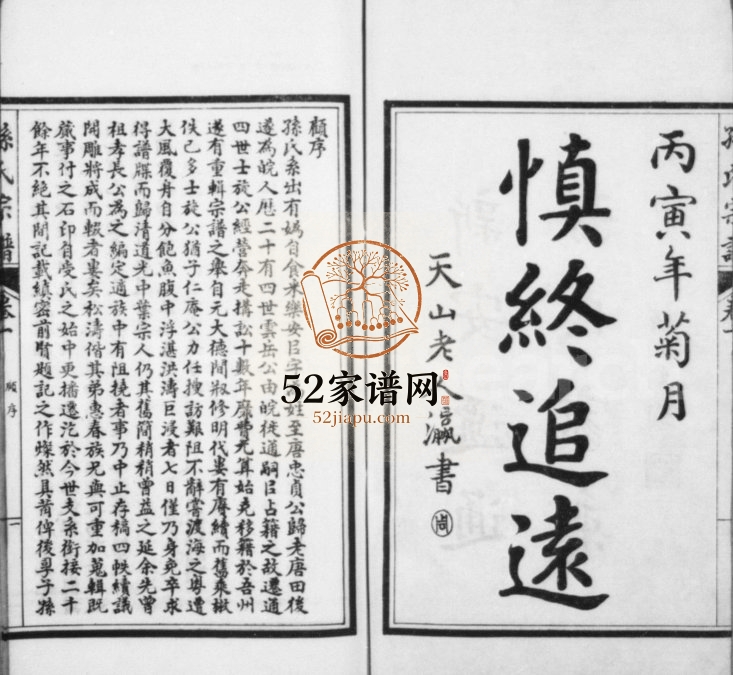 孫氏宗譜
丙寅年菊月
慎終追遠
天山老人瀛書
顧序
孫氏系出有媯自食采樂安以字姓至唐忠貞公歸老唐田後
遂為皖人歷二十有四世雲岳公由皖徙通嗣以占籍之故遷通
四世士旋公經營奔走搆訟十數年靡費尤算始克移籍於吾州
遂有重輯宗譜之舉自元大德間淑修明代婁有賡續而舊乘散
佚已多士旋公猶子仁庵公力任搜訪艱阻不辭嘗渡海之粵遭
大風覆舟自分飽魚腹中浮湛洪濤巨浸者七日僅乃身免卒求
得譜牒而歸清道光中葉宗人仍其舊簡稍稍增益之延余先曾
祖孝長公為之編定適族中有阻撓者事乃中止存稿四帙續議
開雕將成而輟者婁矣松濤偕其弟惠春族兄與可重加蒐輯既
蕆事付之石印自受氏之始中更播遷迄於今世支系銜接二十
餘年不絕其間記載縝密前賢題記之作燦然具葡俾後專子孫
孫氏宗譜
卷一
顧序
一
卷一
52家谱网
52jiapu.com